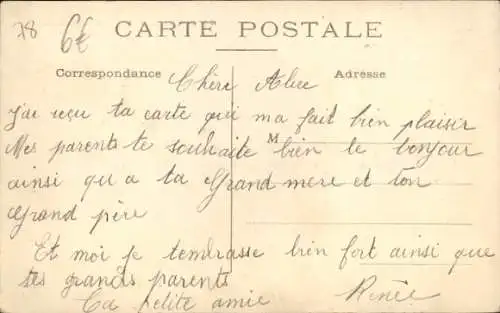 78 6€
CARTE POSTALE
Correspondance Adresse
Chère Alice
J'ai reçu ta carte qui ma fait bien plaisir
M
Mes parents te souhaite bien le bonjour
ainsi qu'a ta Grand mere et ton
Grand père
Et moi je tembrasse bien fort ainsi que
tes grands parents
Ta petite amie Renée